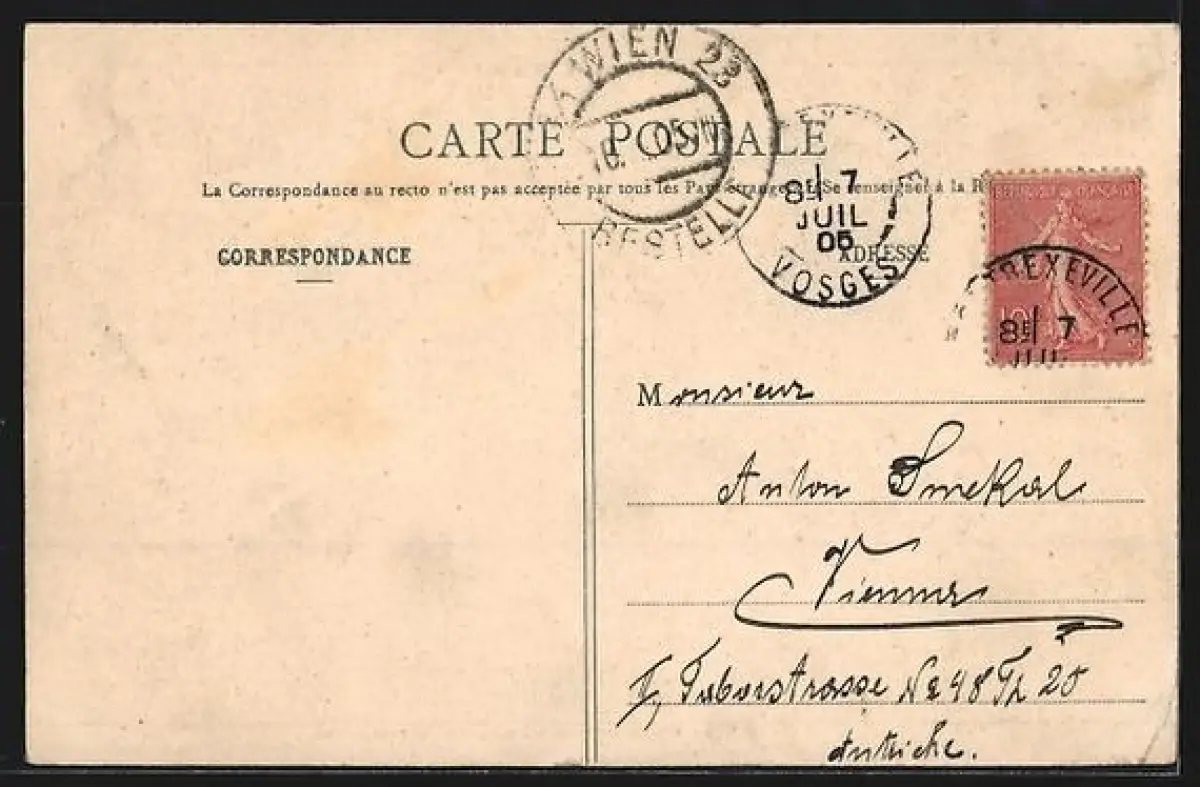 WIEN 23
BESTELLT
05
CARTE POSTALE
La Correspondance au recto n'est pas acceptée par tous les Pays étrangers (Se renseigner à la
CORRESPONDANCE
ADRESSE
8 7
JUIL
05
VOSGES
REPUBLIQUE FRANÇAISE
10
TREXEVILLE
8 7
JUIL
Monsieur
Anton Smekal
Vienne
Taborstrasse No 48 Th 20
Autriche.